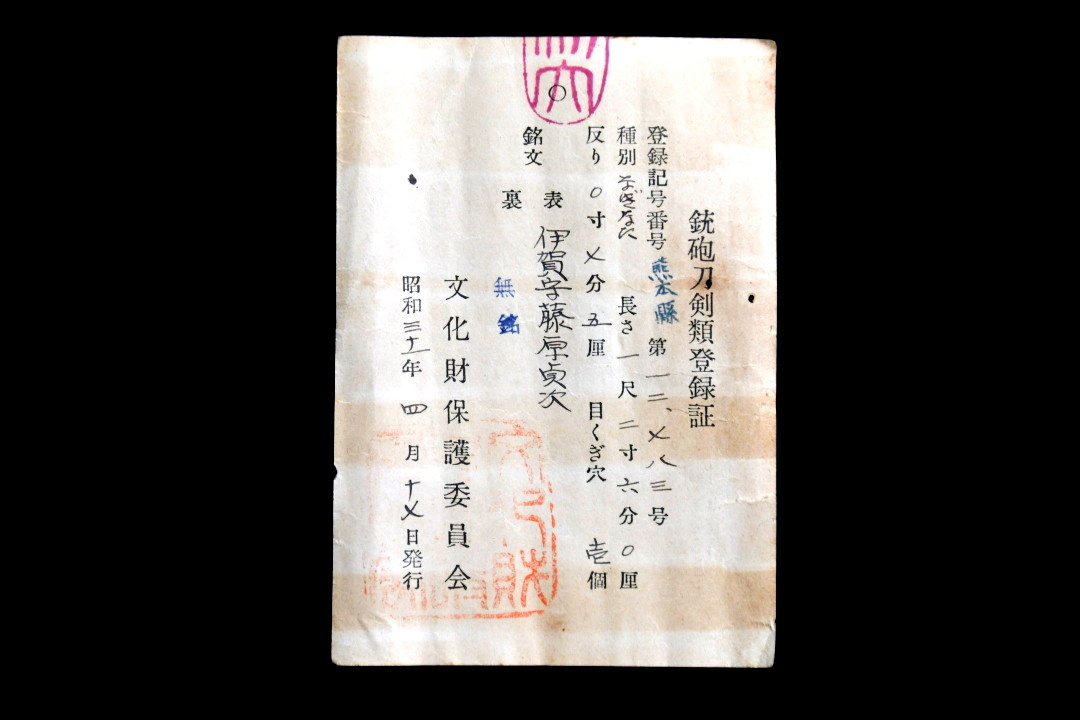 銃砲刀剣類登録証
登録記号番号 熊本縣 第一二、〤八三号
種別 なぎなた 長さ 一尺二寸六分〇厘
反り 〇寸〤分五厘 目くぎ穴 壱個
銘文 表 伊賀守藤原貞次
裏 無銘
文化財保護委員会
昭和三十一年 四月十〤日発行